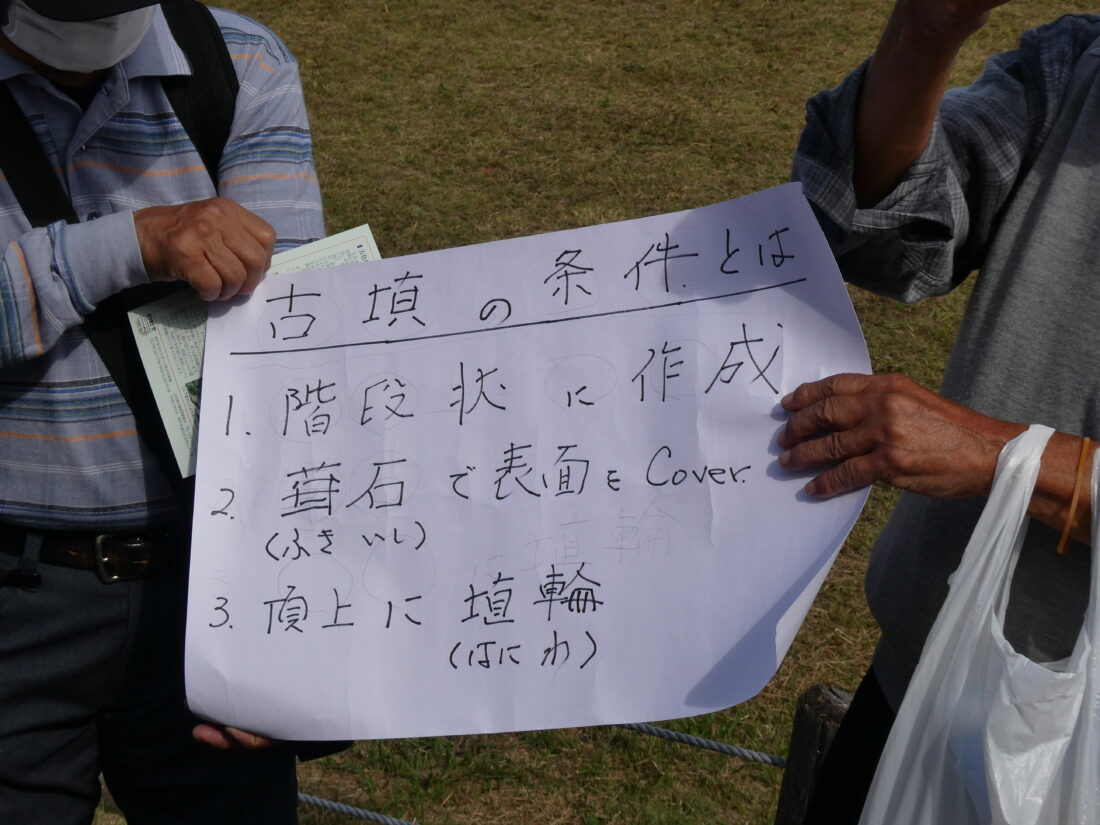 古墳の条件とは
1. 階段状に作成
2. 葺石で表面をCover.
(ふきいし)
3. 頂上に埴輪
(はにわ)